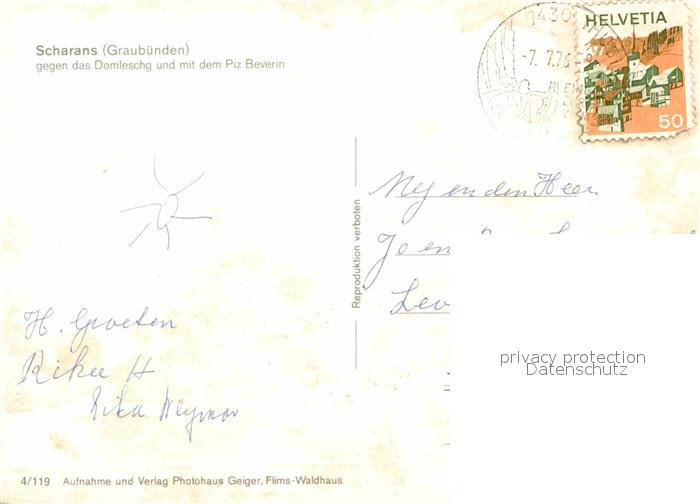 Scharans (Graubünden)
gegen das Domleschg und mit dem Piz Beverin
HELVETIA
50
7430
-7. 7.76
Reproduktion verboten
en den Heer.
Jo en
Lev
H. Groeten
Rika
privacy protection
Datenschutz
4/119 Aufnahme und Verlag Photohaus Geiger, Flims-Waldhaus